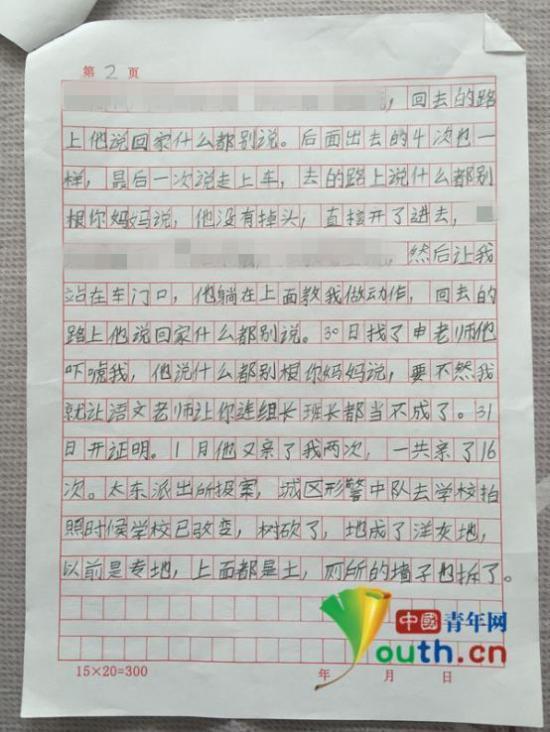 第 2 页
，回去的路
上他说回家什么都别说。后面出去的4次也一
样，最后一次说走上车，去的路上说什么都别
根你妈妈说，他没有掉头，直接开了进去，
，然后让我
站在车门口，他躺在上面教我做动作，回去的
路上他说回家什么都别说。30日找了申老师他
吓唬我，他说什么都别根你妈妈说，要不然我
就让语文老师让你连组长班长都当不成了。31
日开证明。1月他又亲了我两次，一共亲了16
次。太东派出所报案，城区形警中队去学校拍
照时候学校已改变，树砍了，地成了洋灰地，
以前是专地，上面都是土，厕所的墙子也拆了。
中國青年网
youth.cn
15×20=300 年 月 日